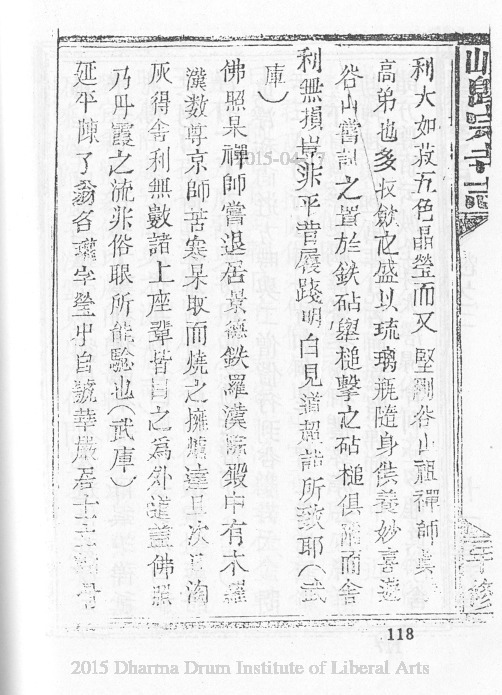 利大如菽五色晶瑩而又堅剛谷山祖禪師真
高弟也多收斂之盛以琉璃瓶隨身供養妙喜遊
谷山嘗試之置於鉄砧舉槌擊之砧槌俱而舍
利無損豈非平昔履踐明白見道超詣所致耶(武
庫)
佛照杲禪師嘗退居景德鉄羅漢院殿中有木羅
漢数尊京師苦寒杲取而燒之擁爐達旦次日淘
灰得舍利無數諸上座輩皆目之為外道蓋佛照
乃丹霞之流非俗眼所能驗也(武庫)
延平陳了翁名瓘字瑩中自號華嚴居士立
年修
118
2015 Dharma Drum Institute of Liberal Arts